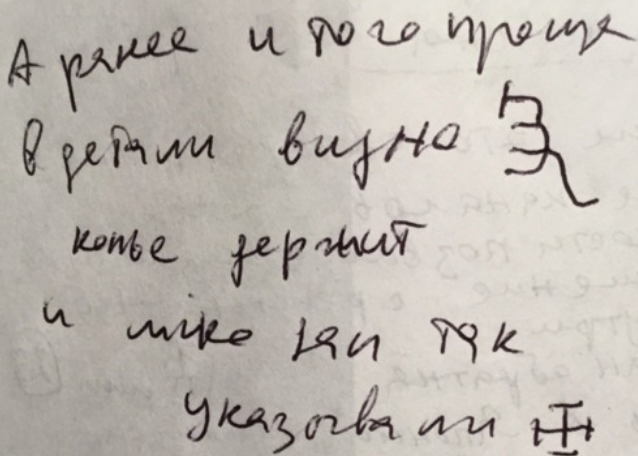 А ранее и того проще
в детали видно
копье держит
и так
указывали